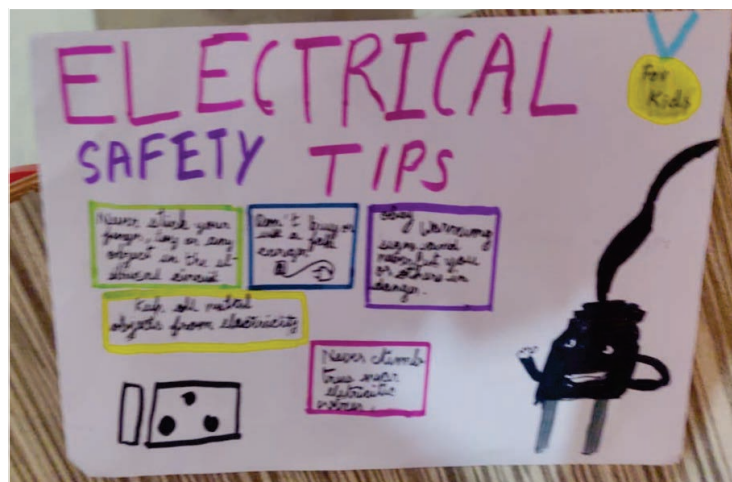 ELECTRICAL
For
Kids
SAFETY TIPS
Never stick your
finger, toy or any
object in the el-
ectrical circuit
Don't buy or
use a
obey Warning
sign and
never put you
or others in
danger.
Keep all metal
objects from electricity
Never climb
trees near